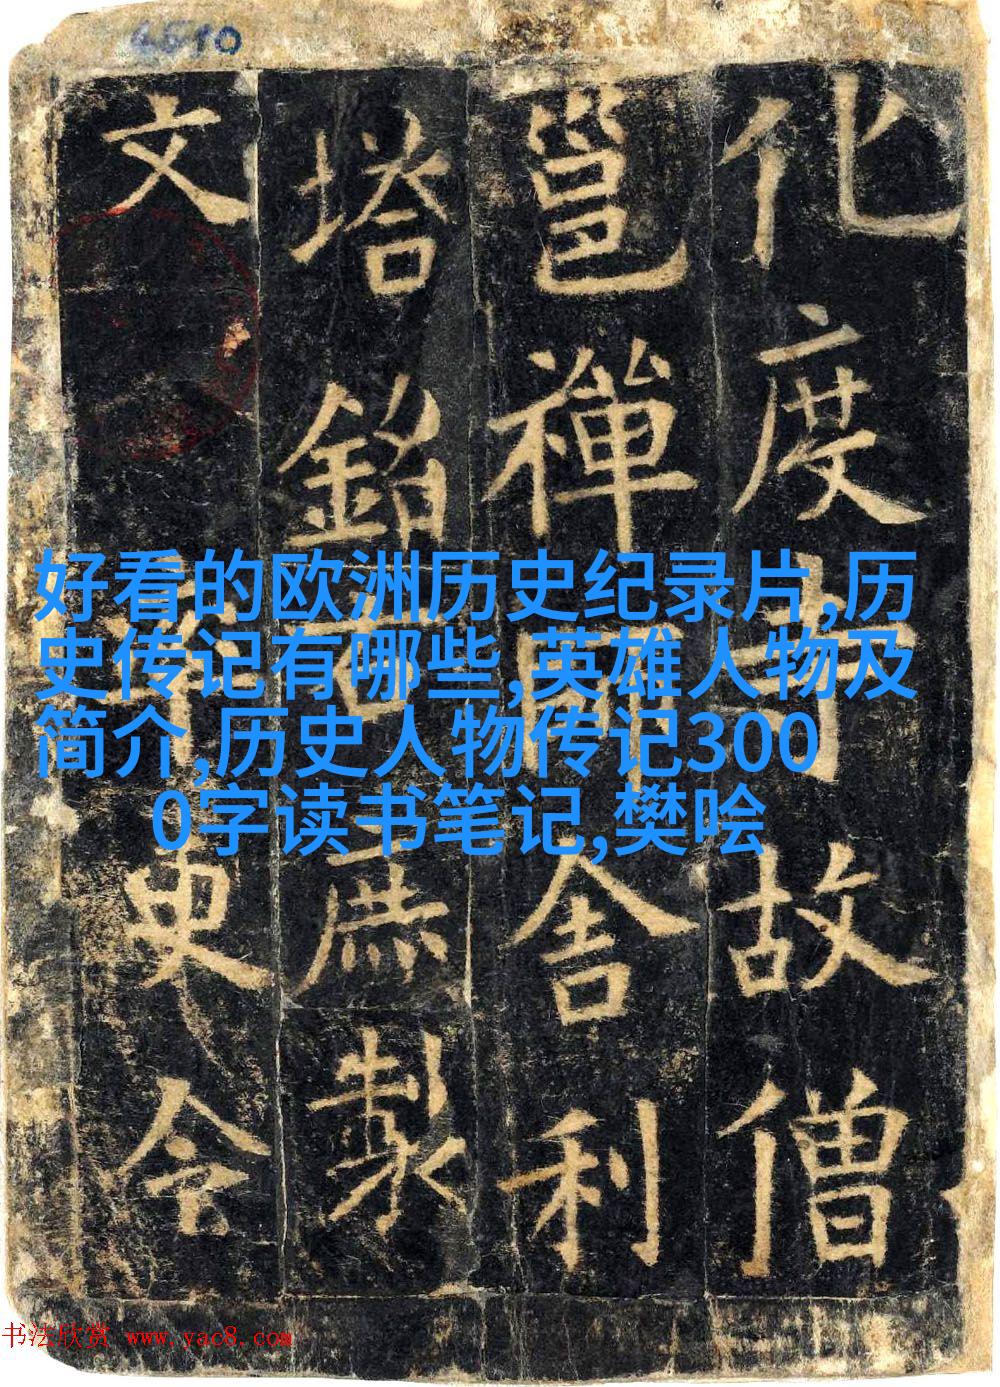 化度寺故僧
邕禪舍利
塔銘庶製
文更令
好看的欧洲历史纪录片,历
史传记有哪些,英雄人物及
简介,历史人物传记300
0字读书笔记,樊哙
书法欣赏 www.yac8.com